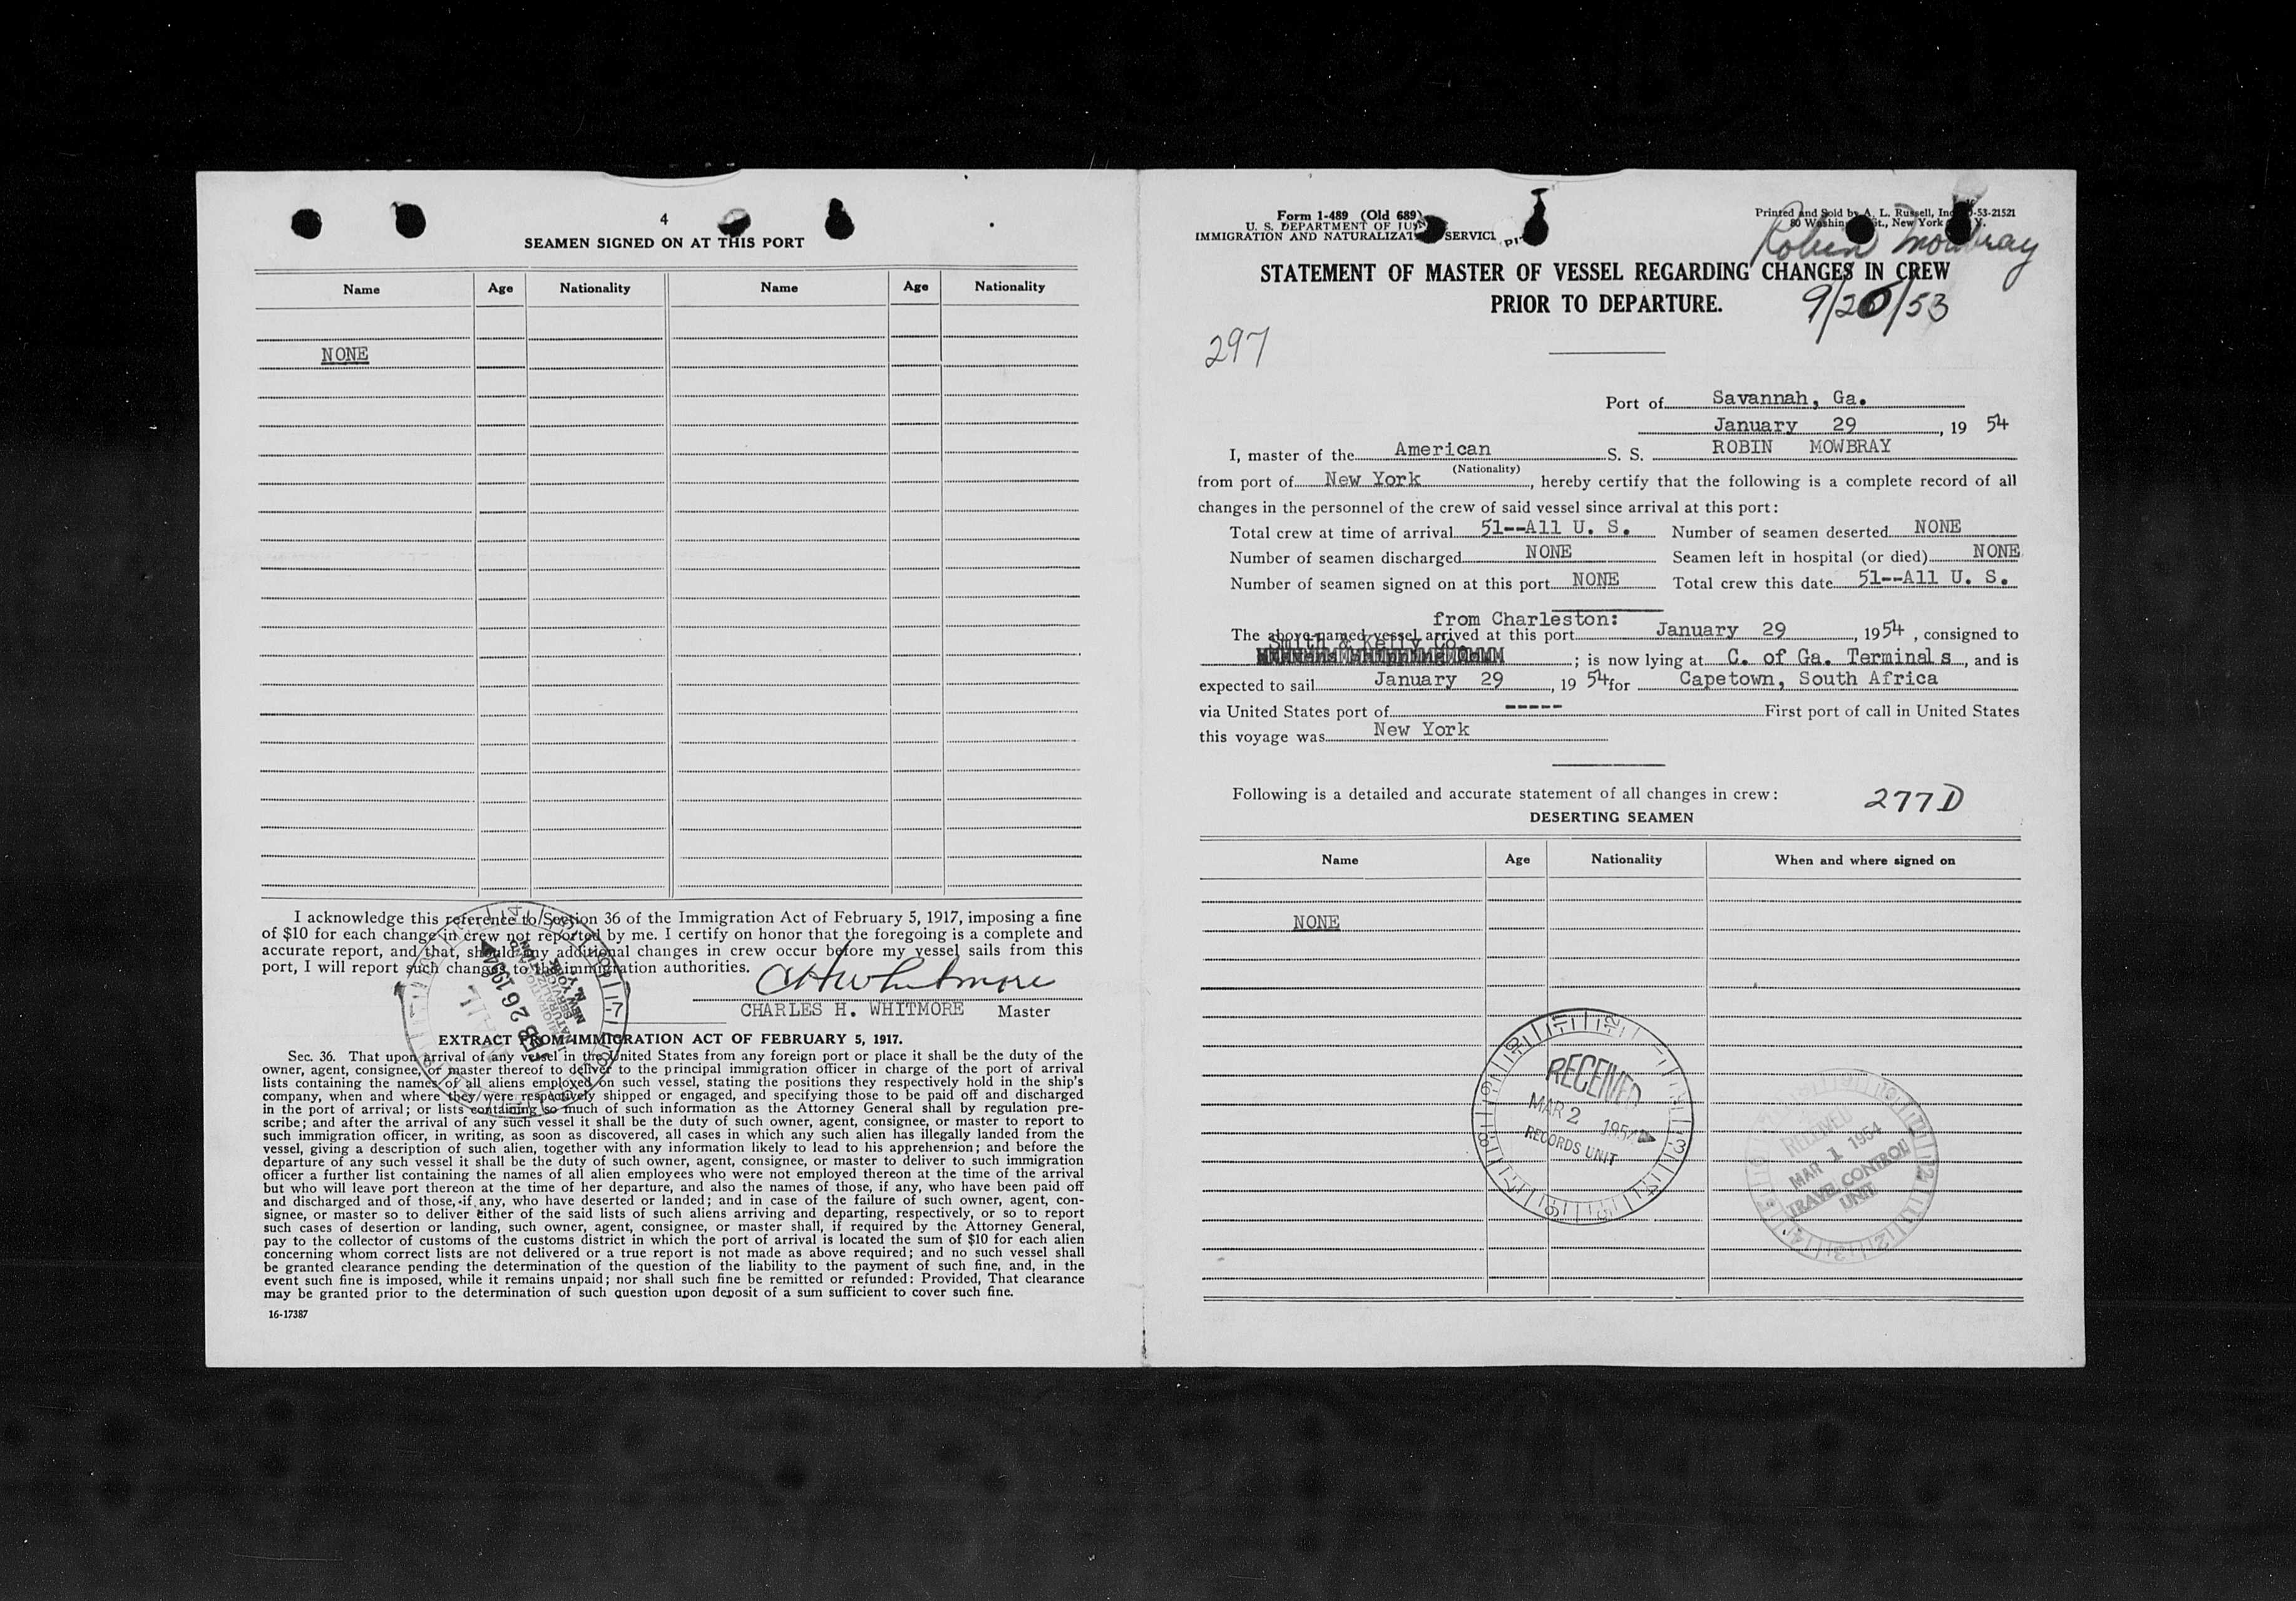 4
SEAMEN SIGNED ON AT THIS PORT
Name Age Nationality Name Age Nationality
NONE
I acknowledge this reference to Section 36 of the Immigration Act of February 5, 1917, imposing a fine
of $10 for each change in crew not reported by me. I certify on honor that the foregoing is a complete and
accurate report, and that, should any additional changes in crew occur before my vessel sails from this
port, I will report such changes to the immigration authorities.
C H Whitmore
CHARLES H. WHITMORE Master
EXTRACT FROM IMMIGRATION ACT OF FEBRUARY 5, 1917.
Sec. 36. That upon arrival of any vessel in the United States from any foreign port or place it shall be the duty of the
owner, agent, consignee, or master thereof to deliver to the principal immigration officer in charge of the port of arrival
lists containing the names of all aliens employed on such vessel, stating the positions they respectively hold in the ship's
company, when and where they were respectively shipped or engaged, and specifying those to be paid off and discharged
in the port of arrival; or lists containing so much of such information as the Attorney General shall by regulation pre-
scribe; and after the arrival of any such vessel it shall be the duty of such owner, agent, consignee, or master to report to
such immigration officer, in writing, as soon as discovered, all cases in which any such alien has illegally landed from the
vessel, giving a description of such alien, together with any information likely to lead to his apprehension; and before the
departure of any such vessel it shall be the duty of such owner, agent, consignee, or master to deliver to such immigration
officer a further list containing the names of all alien employees who were not employed thereon at the time of the arrival
but who will leave port thereon at the time of her departure, and also the names of those, if any, who have been paid off
and discharged and of those, if any, who have deserted or landed; and in case of the failure of such owner, agent, con-
signee, or master so to deliver either of the said lists of such aliens arriving and departing, respectively, or so to report
such cases of desertion or landing, such owner, agent, consignee, or master shall, if required by the Attorney General,
pay to the collector of customs of the customs district in which the port of arrival is located the sum of $10 for each alien
concerning whom correct lists are not delivered or a true report is not made as above required; and no such vessel shall
be granted clearance pending the determination of the question of the liability to the payment of such fine, and, in the
event such fine is imposed, while it remains unpaid; nor shall such fine be remitted or refunded: Provided, That clearance
may be granted prior to the determination of such question upon deposit of a sum sufficient to cover such fine.
16-17387
FEB 26 1954
Form 1-489 (Old 689)
U. S. DEPARTMENT OF
IMMIGRATION AND
Printed and Sold by A. L. Russell, Inc.
80 New York
Robin Mowbray
STATEMENT OF MASTER OF VESSEL REGARDING CHANGES IN CREW
PRIOR TO DEPARTURE.
9/20/53
297
Port of Savannah, Ga.
January 29, 19 54
I, master of the American S. S. ROBIN MOWBRAY
(Nationality)
from port of New York, hereby certify that the following is a complete record of all
changes in the personnel of the crew of said vessel since arrival at this port:
Total crew at time of arrival 51--All U. S. Number of seamen deserted NONE
Number of seamen discharged NONE Seamen left in hospital (or died) NONE
Number of seamen signed on at this port NONE Total crew this date 51--All U. S.
from Charleston:
The above-named vessel arrived at this port January 29, 1954, consigned to
Smith & Kelly Co.
; is now lying at C. of Ga. Terminals, and is
expected to sail January 29, 19 54 for Capetown, South Africa
via United States port of ----- First port of call in United States
this voyage was New York
Following is a detailed and accurate statement of all changes in crew: 277D
DESERTING SEAMEN
Name Age Nationality When and where signed on
NONE
RECEIVED
MAR 2 1954
RECORDS UNIT
RECEIVED
MAR 1 1954
TRAVEL CONTROL
UNIT